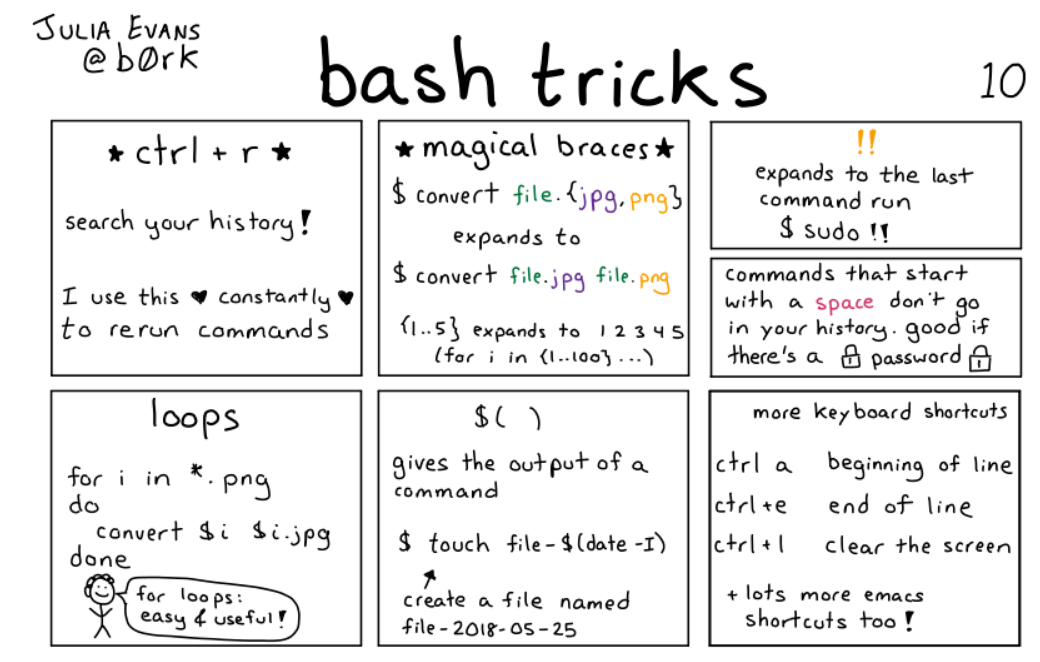 JULIA EVANS
@b0rk
bash tricks
10
★ ctrl + r ★
search your history!
I use this ♥ constantly ♥
to rerun commands
★ magical braces ★
$ convert file.{jpg,png}
expands to
$ convert file.jpg file.png
{1..5} expands to 1 2 3 4 5
(for i in {1..100} ...)
!!
expands to the last
command run
$ sudo !!
commands that start
with a space don't go
in your history. good if
there's a 🔒 password 🔒
loops
for i in *.png
do
convert $i $i.jpg
done
for loops:
easy & useful!
$( )
gives the output of a
command
$ touch file-$(date -I)
create a file named
file-2018-05-25
more keyboard shortcuts
ctrl a beginning of line
ctrl+e end of line
ctrl+l clear the screen
+ lots more emacs
shortcuts too!